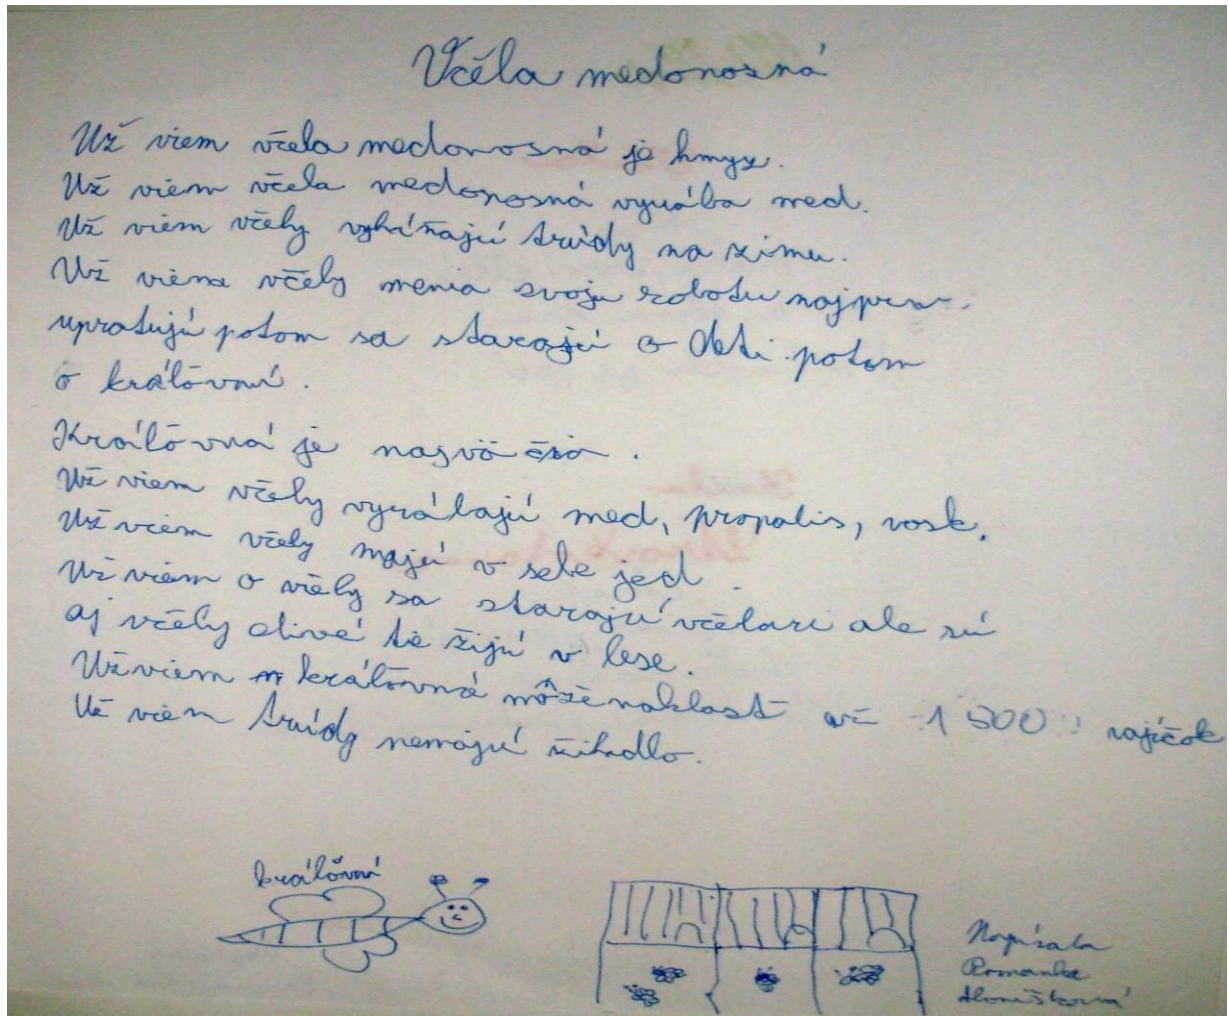 Včela medonosná
Už viem včela medonosná je hmyz.
Už viem včela medonosná vyrába med.
Už viem včely vyháňajú trúdy na zimu.
Už viem včely menia svoju robotu najprv.
upratujú potom sa starajú o deti potom
o králővnú.
Králővná je najvöčšia.
Už viem včely vyrábajú med, propolis, vosk.
Už viem včely majú v sebe jed.
Už viem o včely sa starajú včelari ale sú
aj včely divé tie žijú v lese.
Už viem králővná môže naklasť až 1 500 vajíčok
Už viem trúdy nemajú žihadlo.
králővná
Napísala
Romanka